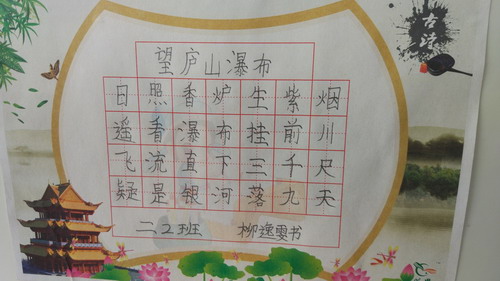 古诗
望庐山瀑布
日照香炉生紫烟
遥看瀑布挂前川
飞流直下三千尺
疑是银河落九天
二2班 柳逸雯书